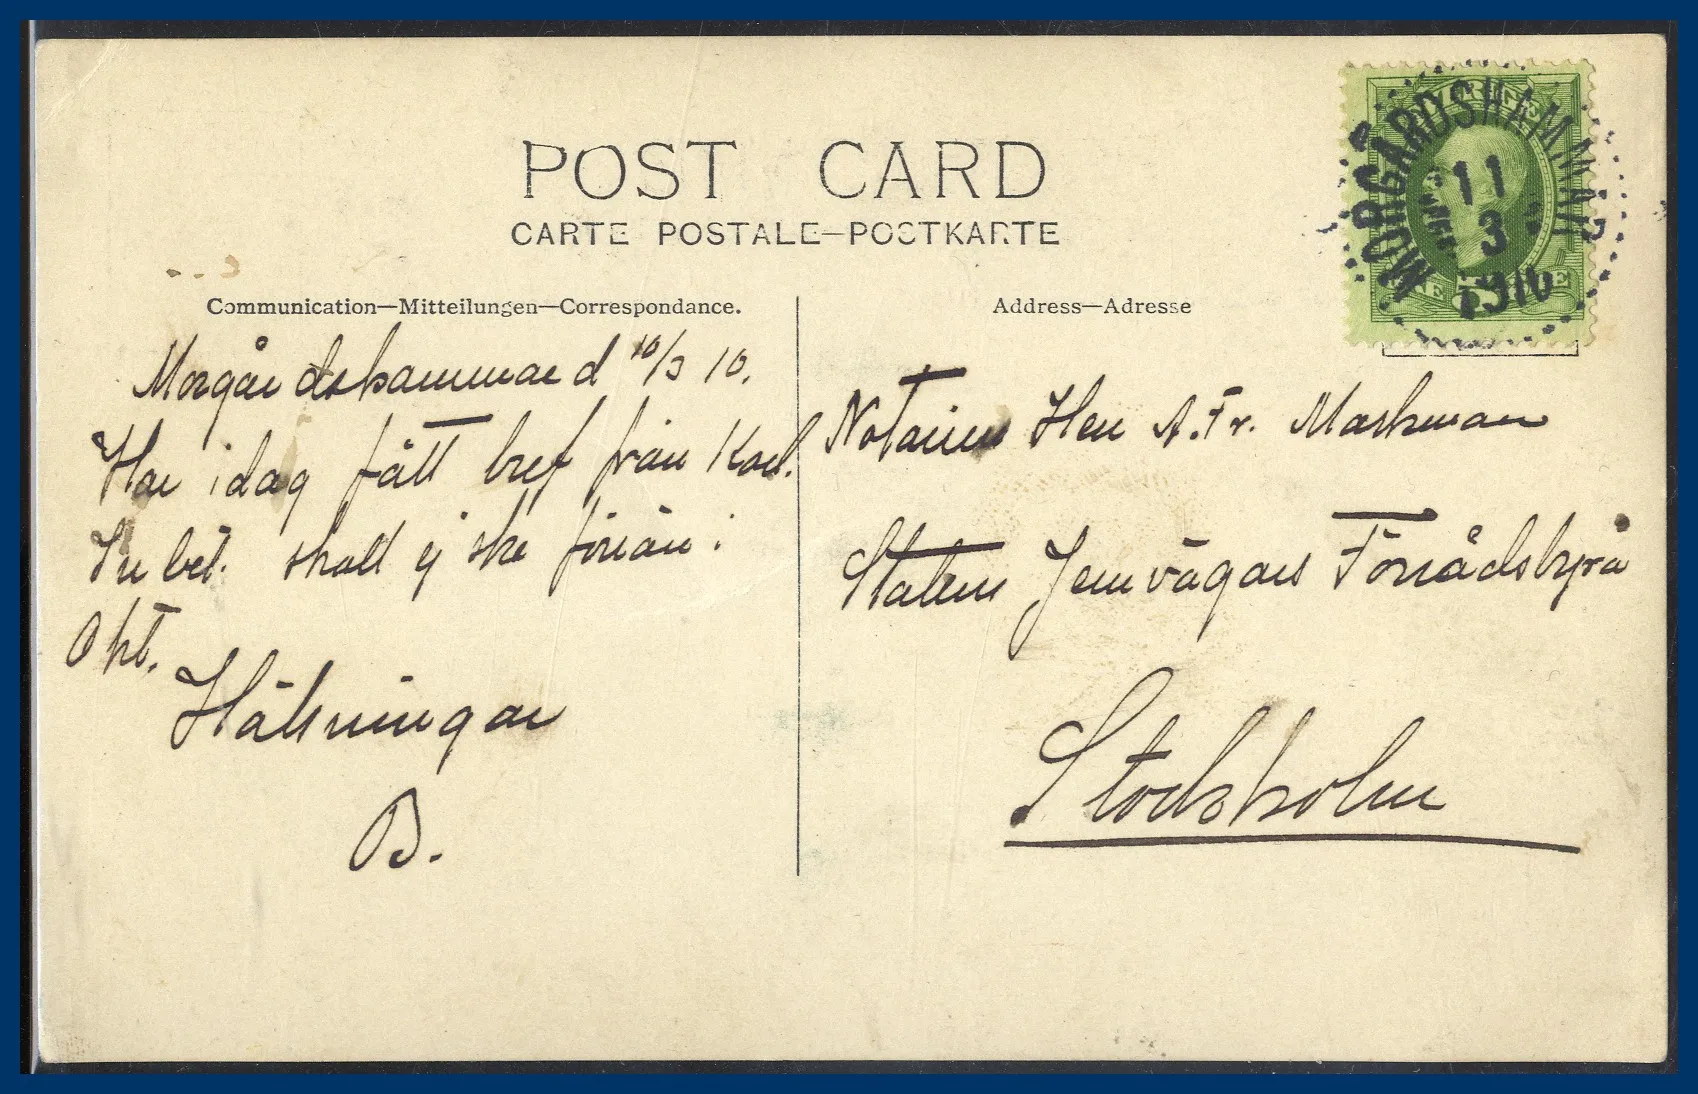 POST CARD
CARTE POSTALE—POSTKARTE
Communication—Mitteilungen—Correspondance.
Morgårdshammar d 10/3 10.
Har idag fått bref från Karl.
bet. skall ej ske förrän i
Okt.
Hälsningar
B.
MORGÅRDSHAMMAR
11
3
1910
Address—Adresse
Notarien Herr A. Fr. Markman
Statens Jernvägars Förrådsbyrå
Stockholm